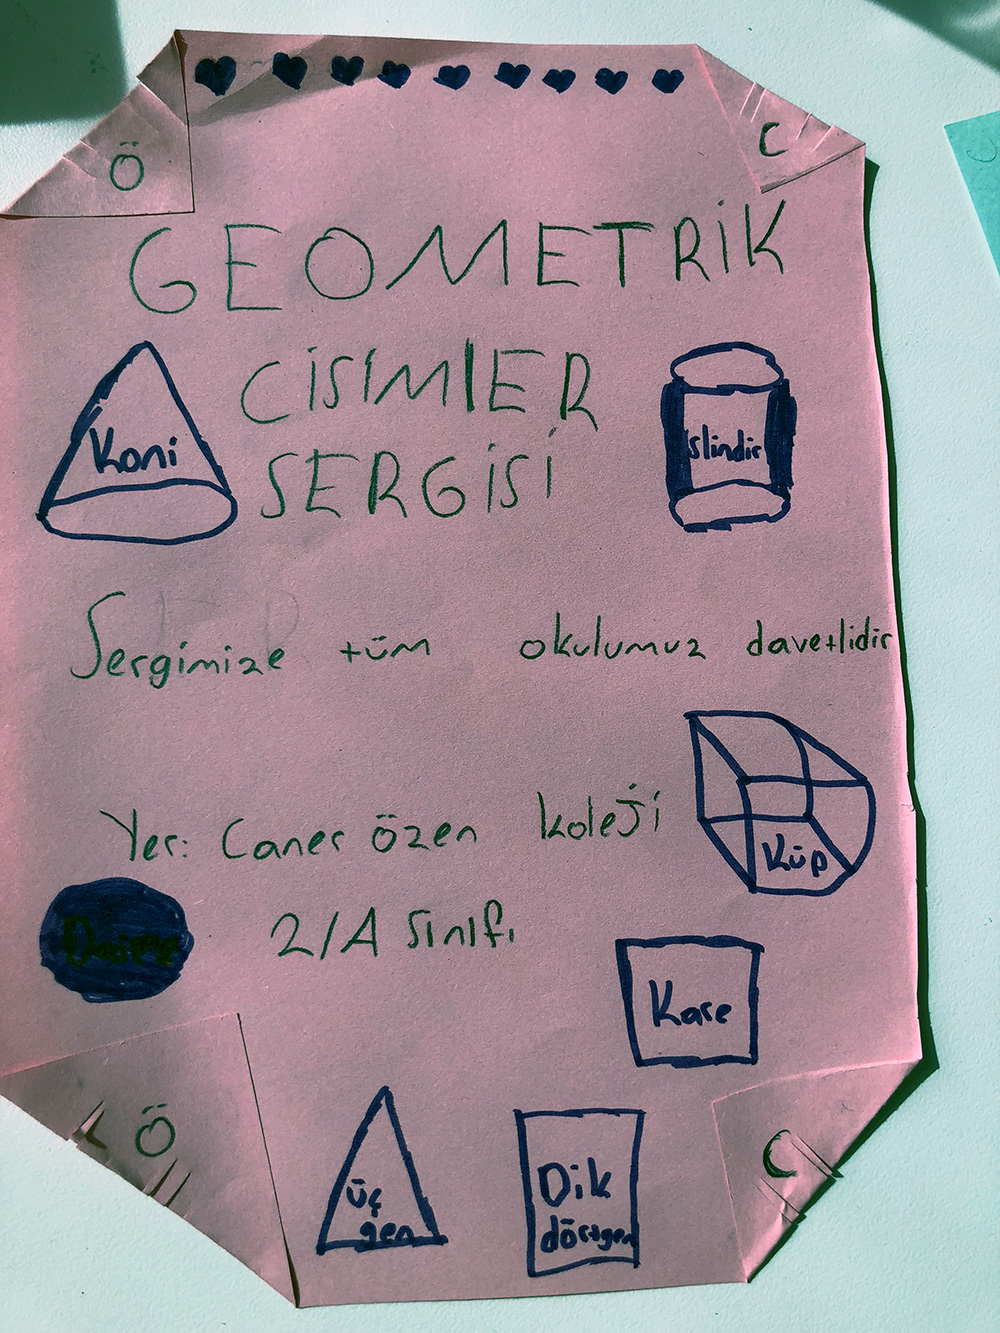 Ö
C
GEOMETRİK
CİSİMLER
SERGİSİ
Koni
islindir
Sergimize tüm okulumuz davetlidir
Yer: Caner özen koleji
Küp
2/A sınıfı
Kare
Ö
C
üç
gen
Dik
dörtgen